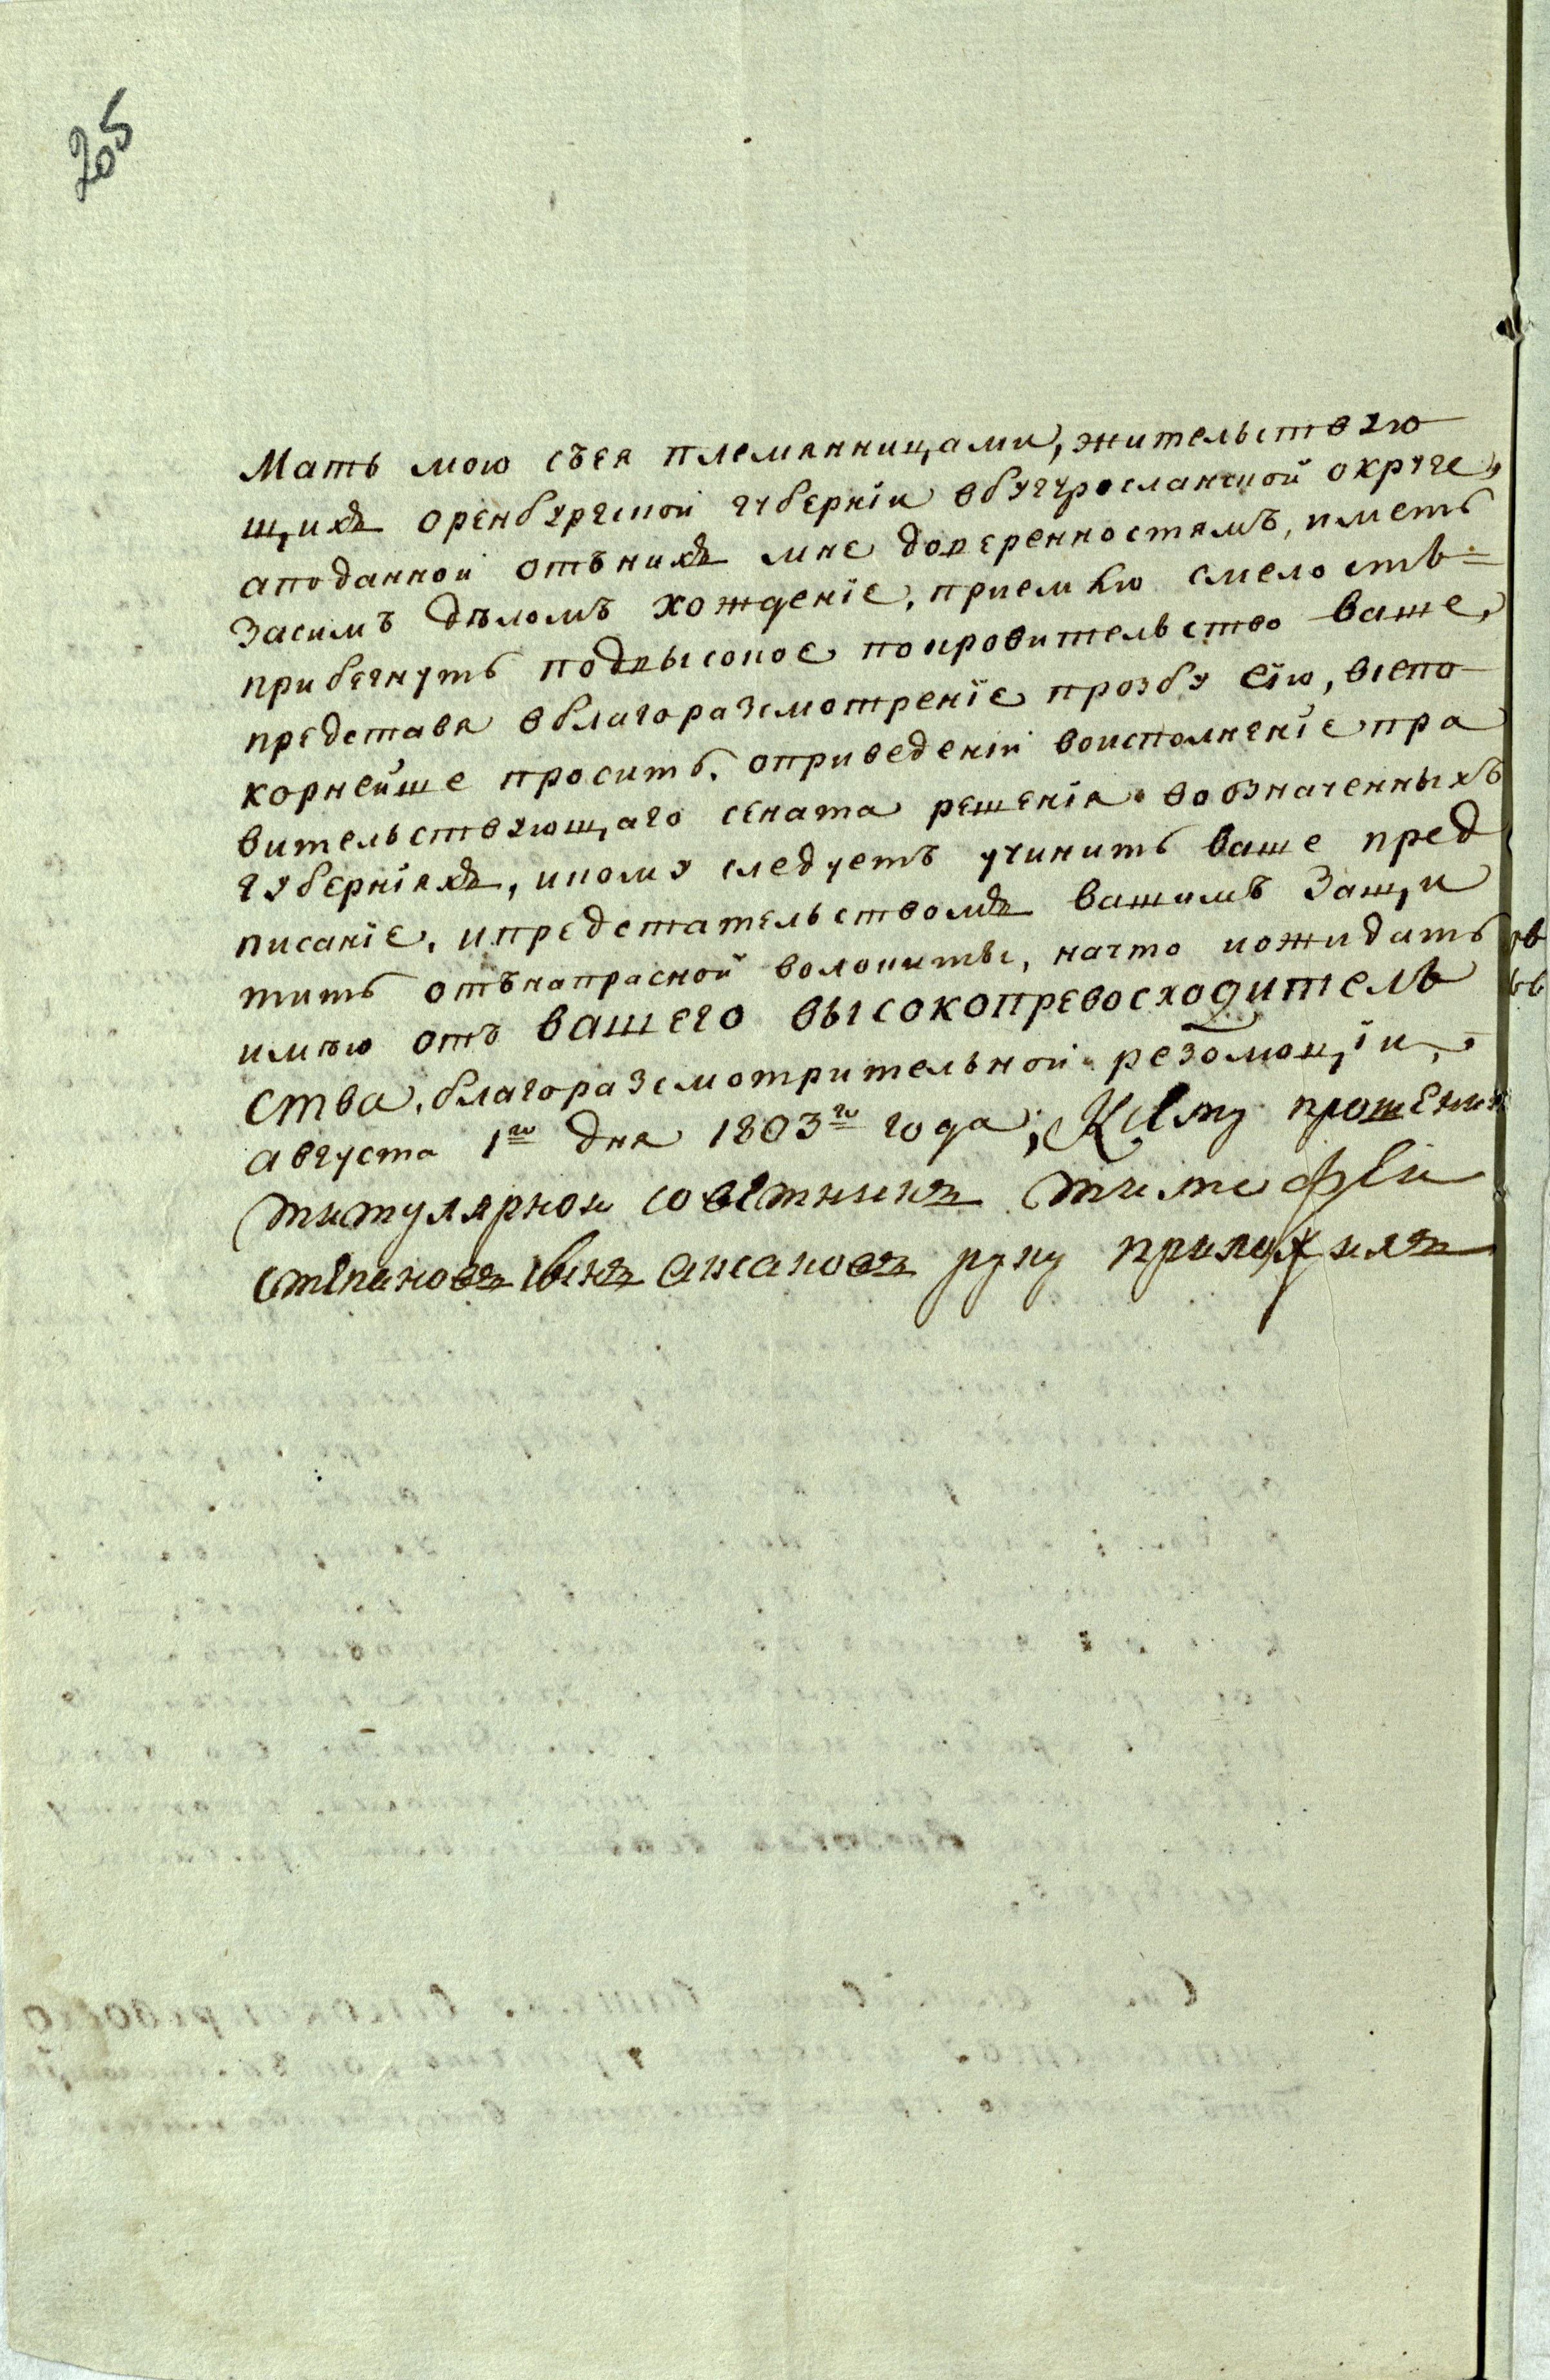 205
Мать мою съея племянницами, жительствую
щихъ оренбургской губернïи вбугуросланской округе,
аподанной отънихъ мне доверенностямъ, иметь
Засимъ дѣломъ хожденïе, приемлю смелость=
прибегнуть подвысокое покровительство ваше,
представя вблагоразсмотренïе прозбу сïю, всепо
корнейше просить. оприведенïи воисполненïе пра
вительствующаго сената решенïя воозначенныхъ
губернïяхъ, икому следуетъ учинить ваше пред
писанïе, ипредстательствомъ вашимъ Защи
тить отънапрасной волокиты, начто иожидать
имѣю отъ вашего высокопревосходитель
ства, благоразсмотрительной резолюцïи,
августа 1го дня 1803го года; Ксему прошению
титулярной советникъ тимофей
степановъ сынъ аксаковъ руку приложилъ